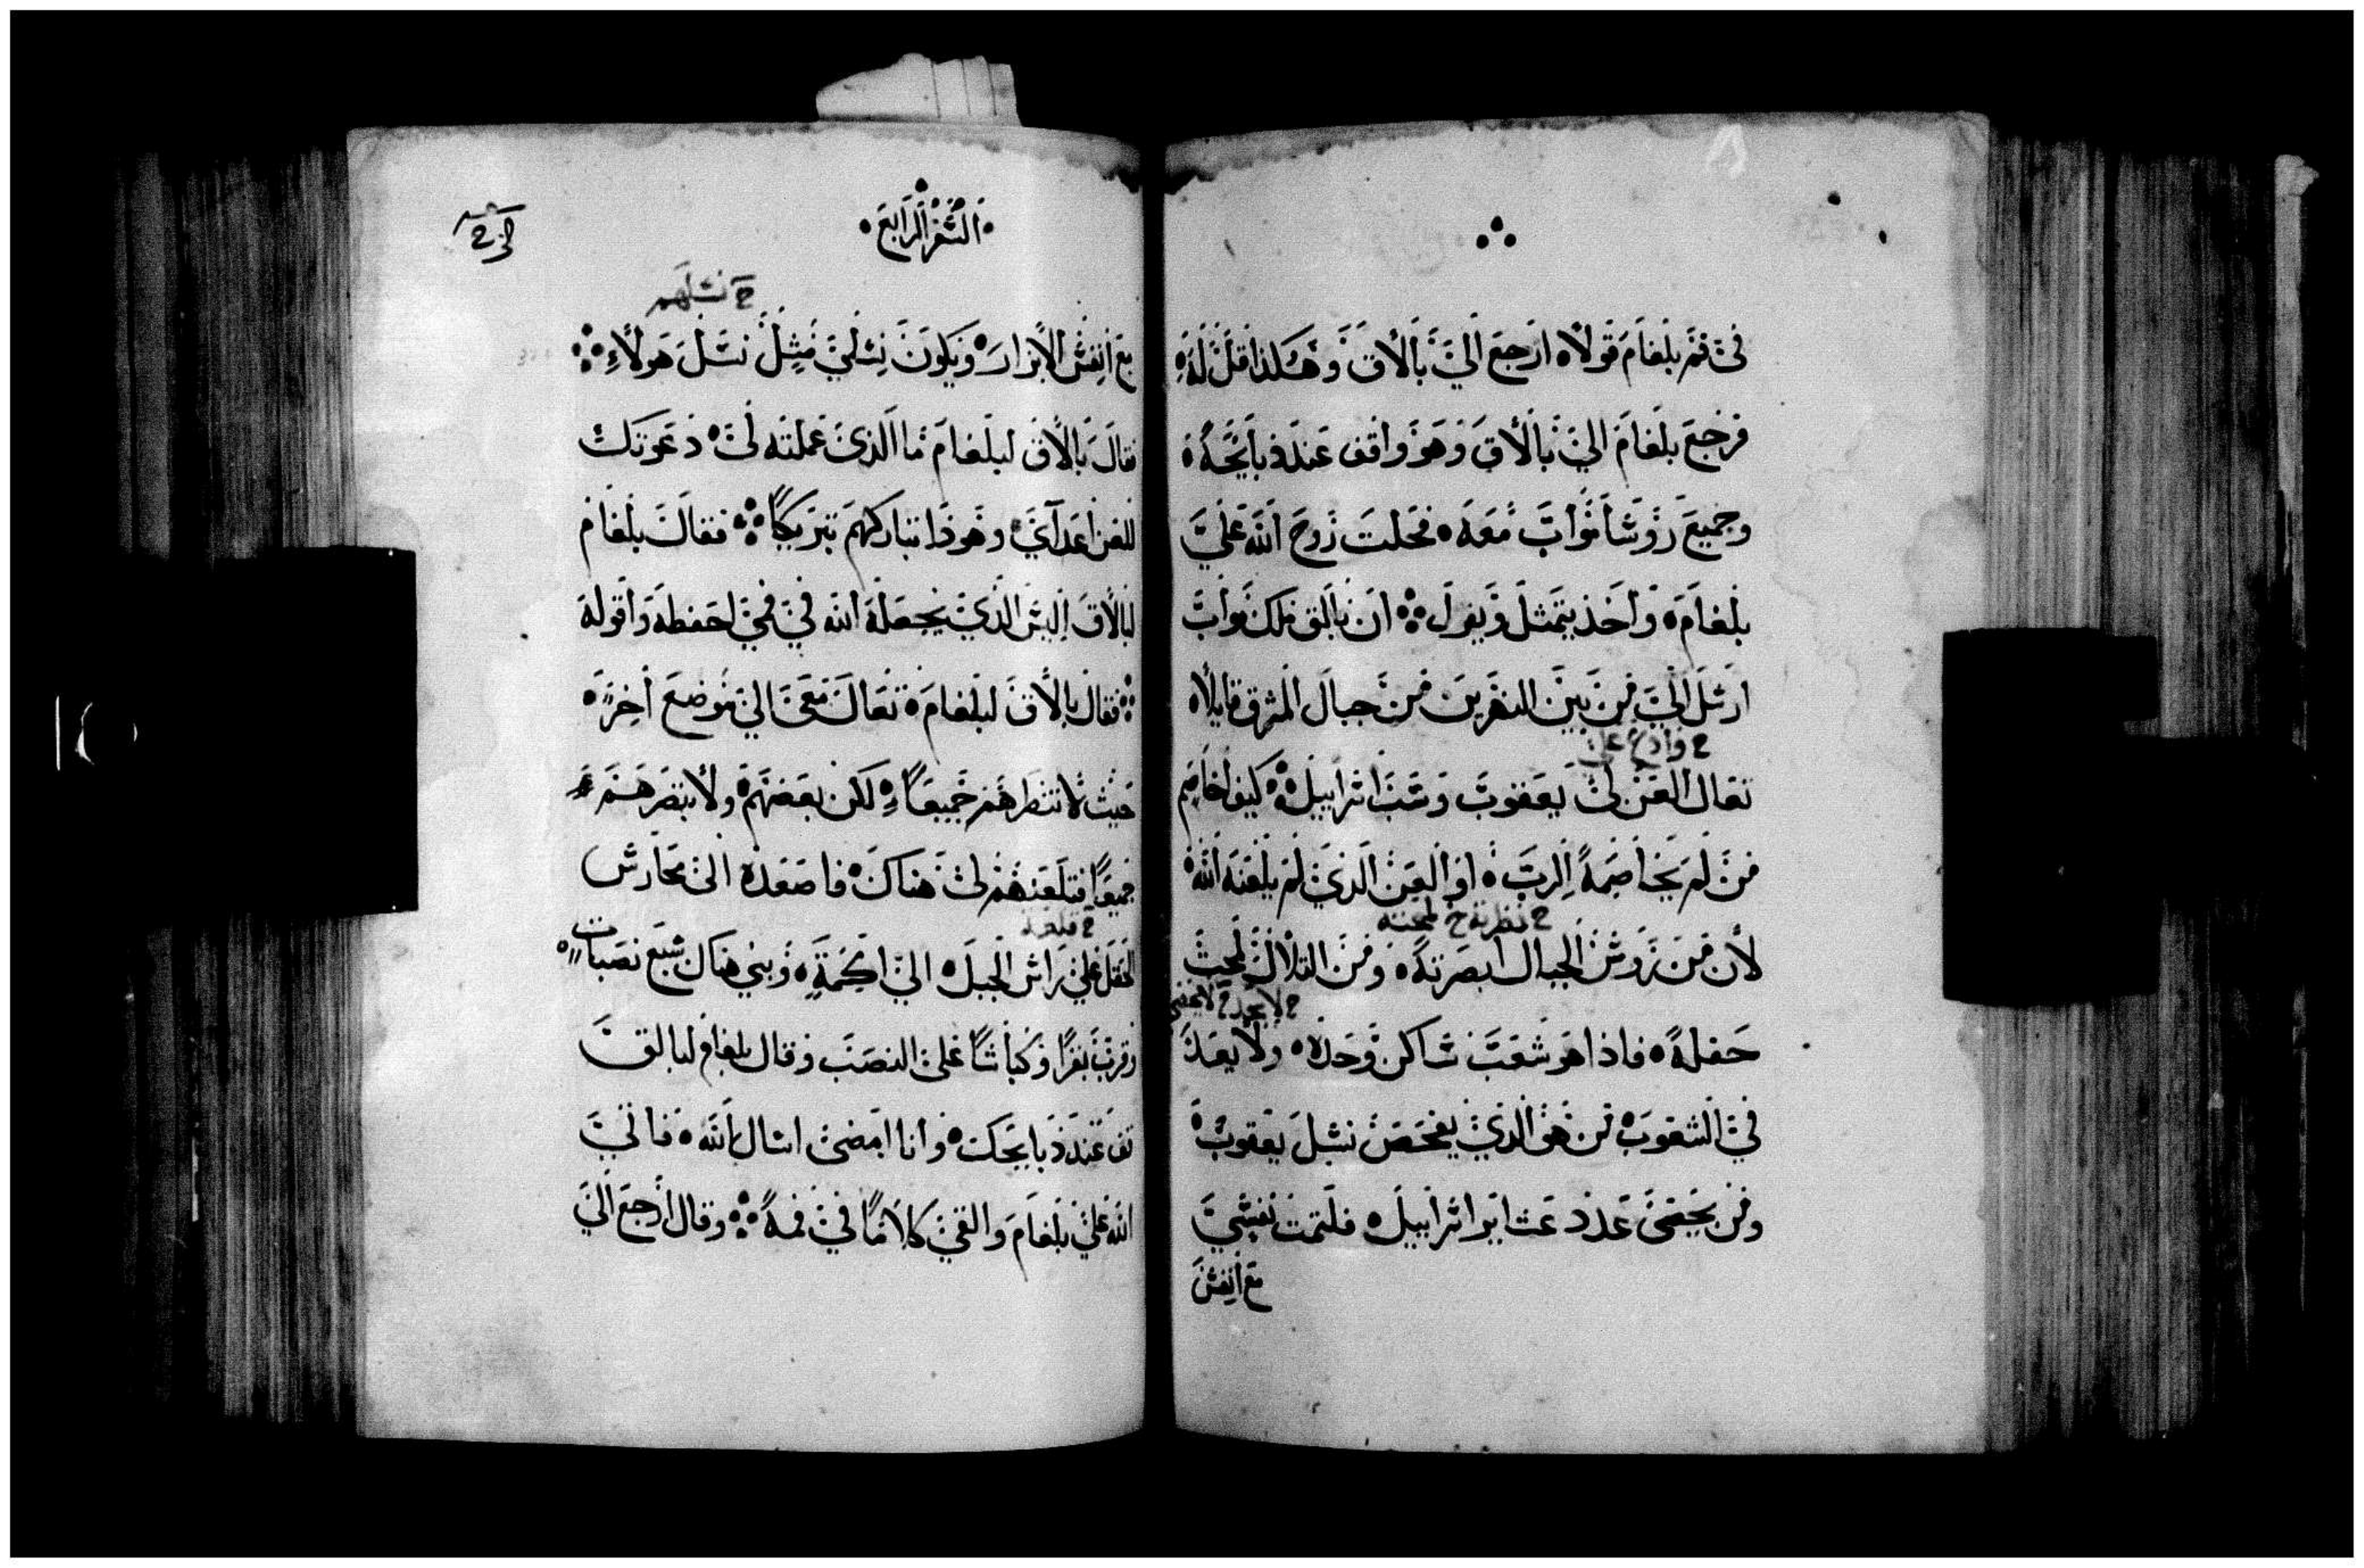 فى فم بلعام قولاً ارجع الي بالاق وهكذا قل له
فرجع بلعام الي بالاق وهو واقف عند ذبايحه
وجميع روسا مواب معه فحلت روح الله علي
بلعام واخذ يتمثل ويقول ان بالق ملك مواب
ارسل الي من بين النهرين من جبال المشرق قايلاً
ح وادع على
تعال العن لى يعقوب وسب اسراييل كيف اخاصم
من لم يخاصمه الرب او العن الذي لم يلعنه الله
ح نظرته ح لمحته
لان من روس الجبال ابصرته ومن التلال لمحت
ح لا يعد ح لا يحصى
حقله فاذا هو شعب ساكن وحده ولا يعد
في الشعوب من هو الذي يفحص نسل يعقوب
ومن يحصى عدد عشاير اسراييل فلتمت نفسي
مع انفس
السفر الرابع
ح نسلهم
مع انفس الابرار ويكون نسلي مثل نسل هولاء
فقال بالاق لبلعام ما الذى عملته لى دعوتك
للعن اعداي وهوذا تباركهم تبريكاً فقال بلعام
لبالاق اليس الذي يجعله الله في فمي احفظه واقوله
فقال بالاق لبلعام تعال معى الي موضع اخر
حيث لا تنظرهم جميعاً لكن بعضهم ولا تبصرهم
جميعاً فتلعنهم لى هناك فاصعده الى محارس
الحقل على راس الجبل الي اكمة وبني هناك سبع نصبات
وقرب بقراً وكباشاً على النصب وقال بلعام لبالق
قف عند ذبايحك وانا امضى اسال الله فاتي
الله على بلعام والقي كلاماً في فمه وقال ارجع الي